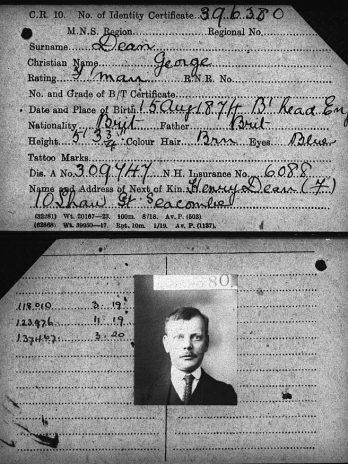 C.R. 10. No. of Identity Certificate 396380
M.N.S. Region Regional No.
Surname Dean
Christian Name George
Rating F'man R.N.R. No.
No. and Grade of B/T Certificate
Date and Place of Birth 15 Aug 1874 B'Head Eng
Nationality Brit Father Brit
Height 5' 3 3/4 Colour Hair Brn Eyes Blue
Tattoo Marks
Dis. A No. 309747 N.H. Insurance No. 6088
Name and Address of Next of Kin Henry Dean (F)
10 Shaw St Seacombe
(32281) Wt. 20167—23. 100m. 8/18. Av. P. (503)
(62868) Wt. 39950—47. Rpt. 10m. 1/19. Av. P. (1137).
380
118010 3. 19
123976 11. 19
3. 20